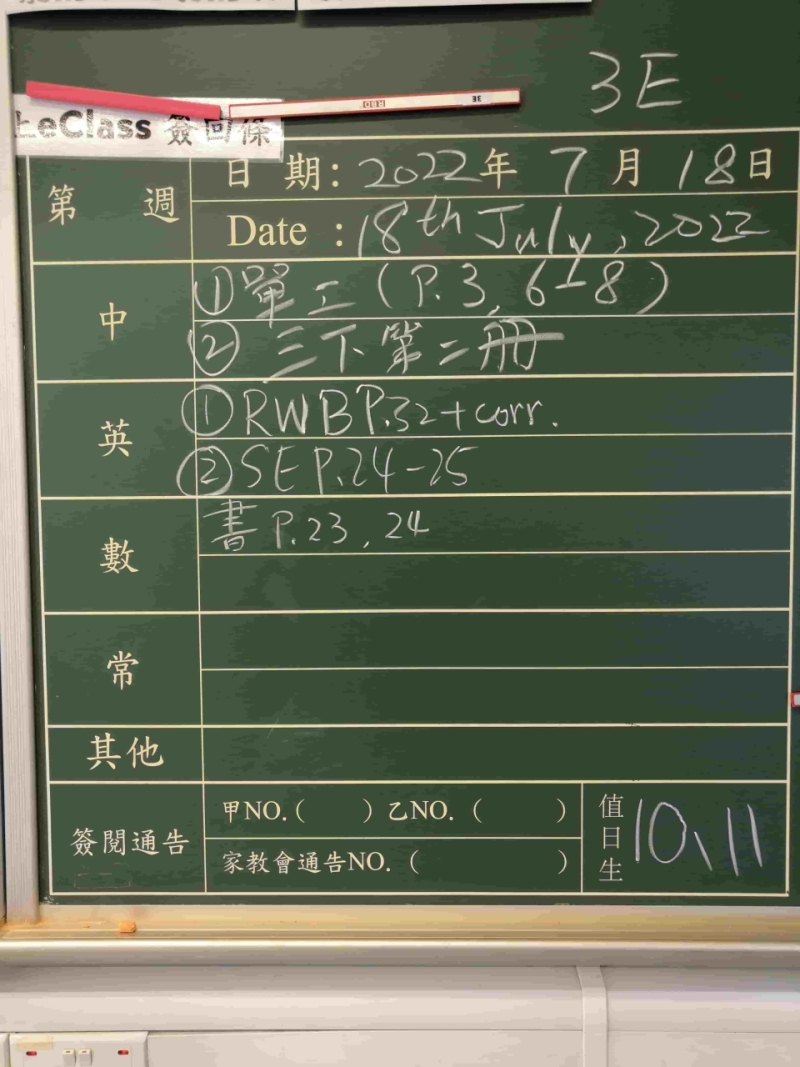 3E
上eClass 簽回條
第 週
日 期: 2022年 7月 18日
Date : 18th July, 2022
中
①單工(P.3, 6-8)
② 三下第二冊
英
①RWB P.32+corr.
②SE P.24-25
數
書 P.23, 24
常
其他
簽閱通告
甲NO.( ) 乙NO. ( )
家教會通告NO. ( )
值日生
10、11